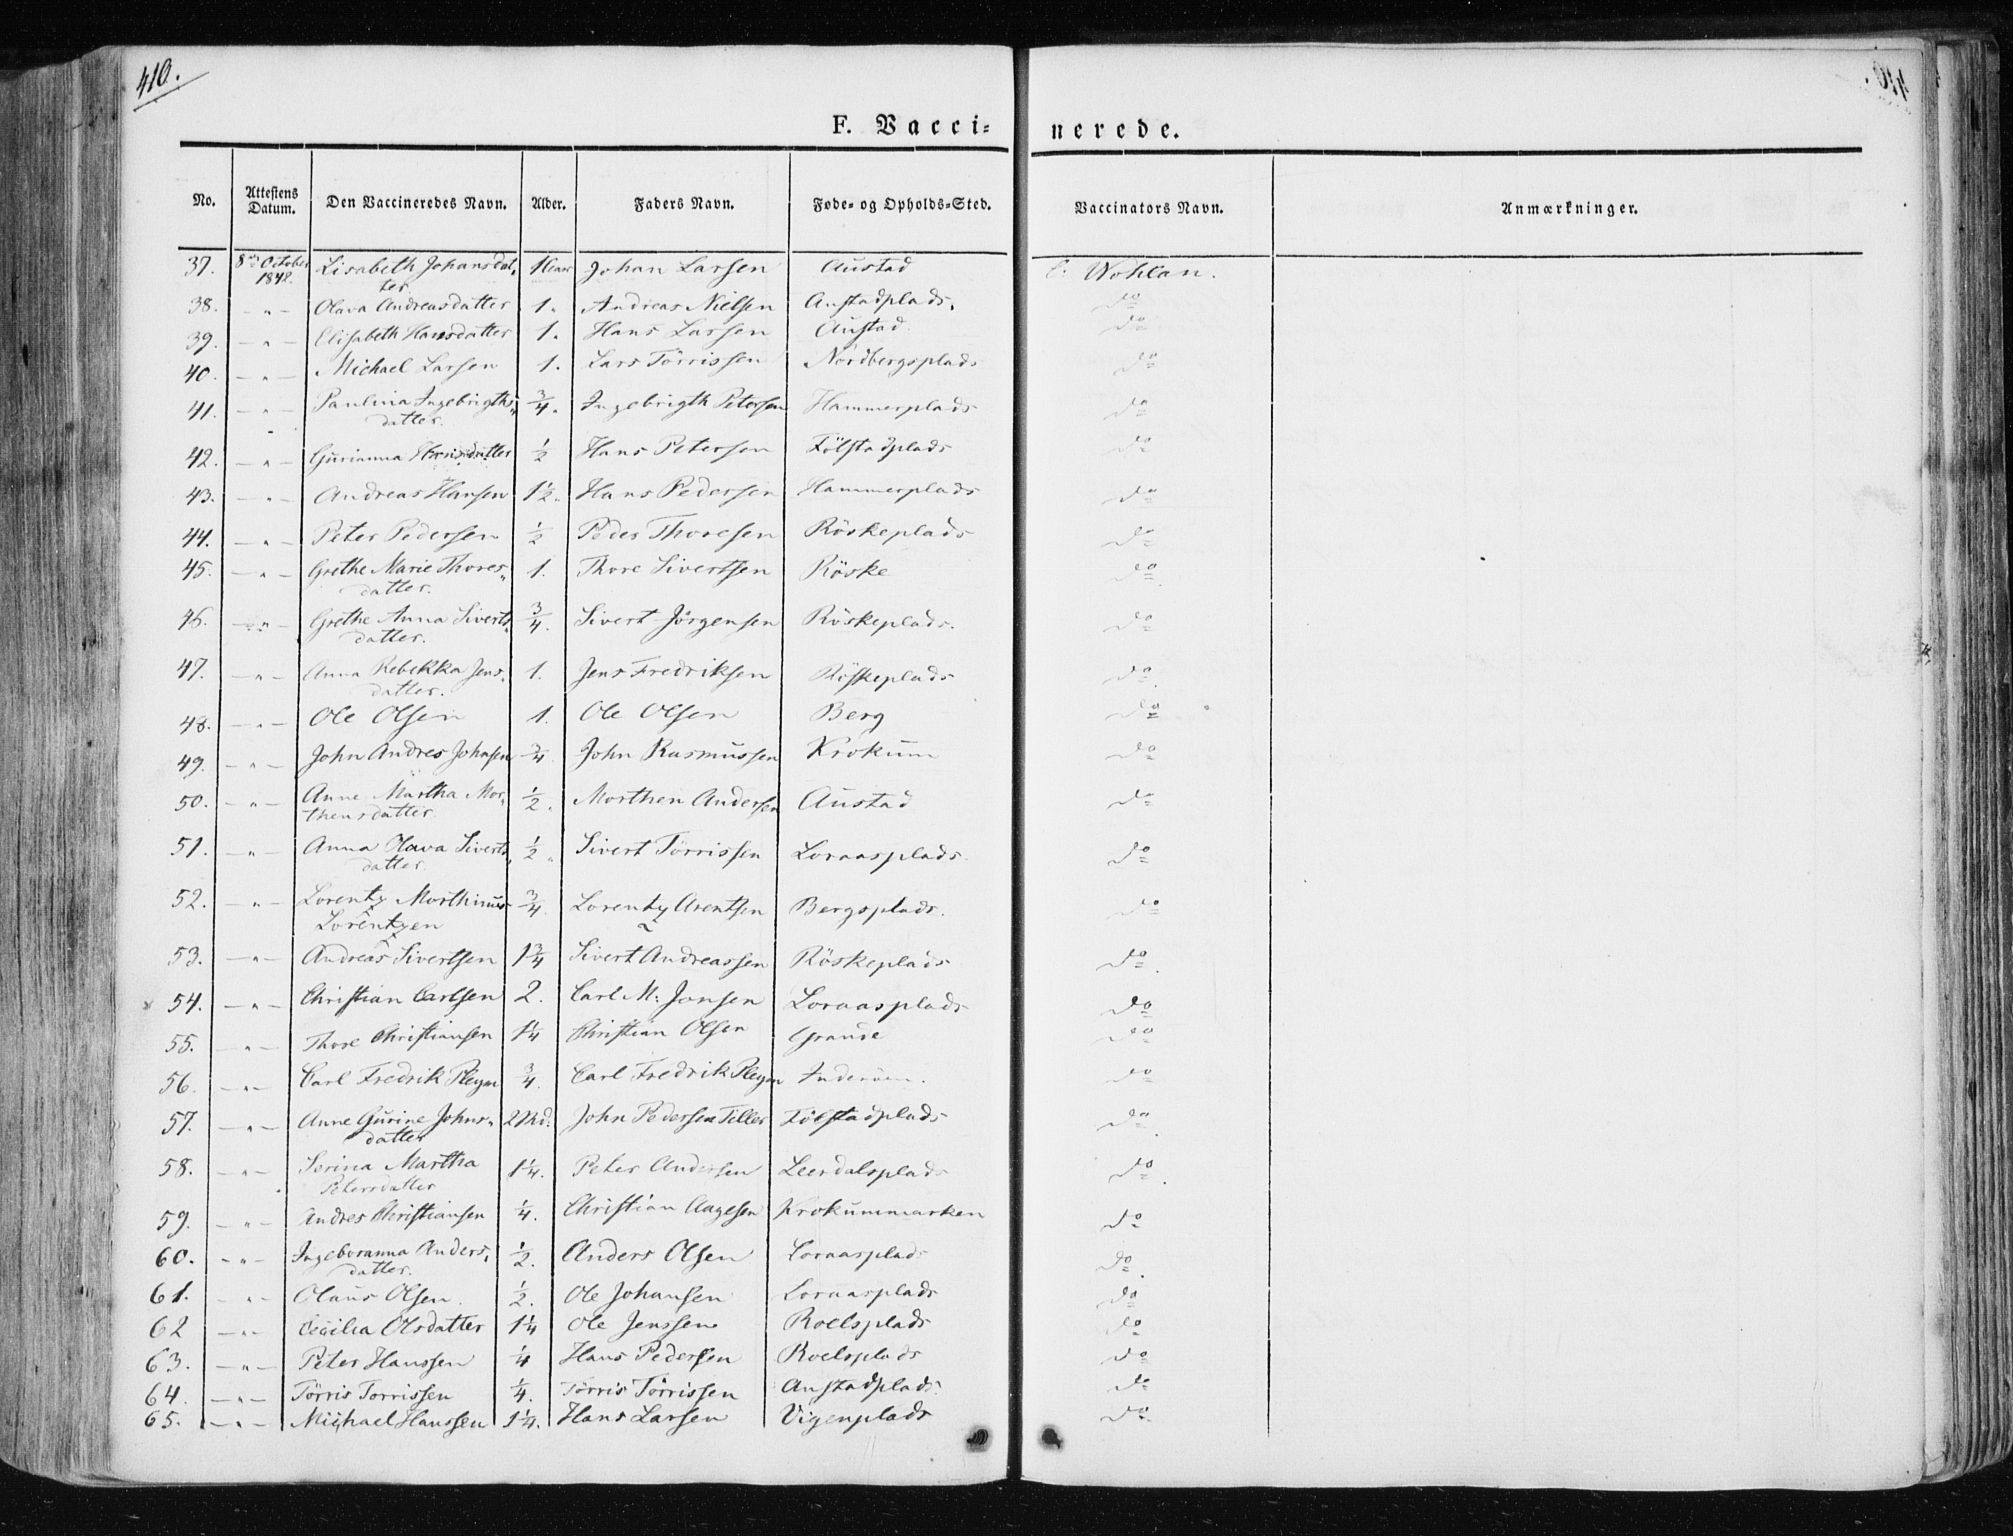 410.
F. Vacci=nerede.
No. Attestens Datum. Den Vaccineredes Navn. Alder. Faders Navn. Føde= og Opholds=Sted. Vaccinators Navn. Anmærkninger.
37. 8de October 1842. Lisabeth Johansdatter 1 Johan Larsen Austad Wohlan.
38. -"- Olava Andreasdatter 1. Andreas Nielsen Austadplads. do
39. -"- Elisabeth Hansdatter 1. Hans Larsen Austad. do
40. -"- Michael Larsen 1. Lars Törrissen Nordbergsplads do
41. -"- Paulina Ingebrigthsdatter. 3/4. Ingebrigth Petersen Hammerplads do
42. -"- Gurianna Hansdatter 1/2 Hans Petersen Fölstadplads do
43. -"- Andreas Hansen 1 1/2. Hans Pedersen Hammerplads do
44. -"- Peter Pedersen 1/2 Peder Thoresen Röskeplads do
45. -"- Grethe Marie Thoresdatter. 1. Thore Sivertsen Röske do
46. -"- Grethe Anna Sivertsdatter. 3/4. Sivert Jörgensen Röskeplads. do
47. -"- Anna Rebekka Jensdatter. 1. Jens Fredriksen Röskeplads do
48. -"- Ole Olsen 1. Ole Olsen Berg do
49. -"- John Andres Johnsen 3/4 John Rasmussen Krokum do
50. -"- Anne Martha Morthensdatter. 1/2. Morthen Andersen Austad do
51. -"- Anna Olava Sivertsdatter. 1/2 Sivert Törrissen Loraasplads. do
52. -"- Lorentz Morthinus Lorentzen 3/4. Lorentz Arentsen Bergsplads. do
53. -"- Andreas Sivertsen 1 3/4 Sivert Andreassen Röskeplads do
54. -"- Christian Carlsen 2. Carl M: Jonsen Loraasplads do
55. -"- Thore Christiansen 1 1/4 Christian Olsen Grande do
56. -"- Carl Fredrik Pleym 3/4. Carl Fredrik Pleym Inderöen. do
57. -"- Anne Gurine Johnsdatter 2 Md. John Pedersen Tiller Fölstadplads do
58. -"- Serina Martha Petersdatter 1 1/4. Peter Andersen Leerdalsplads do
59. -"- Andres Christiansen 1/4. Christian Aagesen Krokummarken do
60. -"- Ingeboranna Andersdatter. 1/2. Anders Olsen Loraasplads do
61. -"- Olaus Olsen. 1/2. Ole Johansen Loraasplads do
62 -"- Cecilia Olsdatter 1 1/4 Ole Jenssen Roelsplads do
63. -"- Peter Hanssen 1/4 Hans Pedersen Roelsplads do
64. -"- Törris Torrissen 1/4. Törris Törrissen Austadplads. do
65. -"- Michael Hanssen 1 1/4. Hans Larsen Vigenplads do